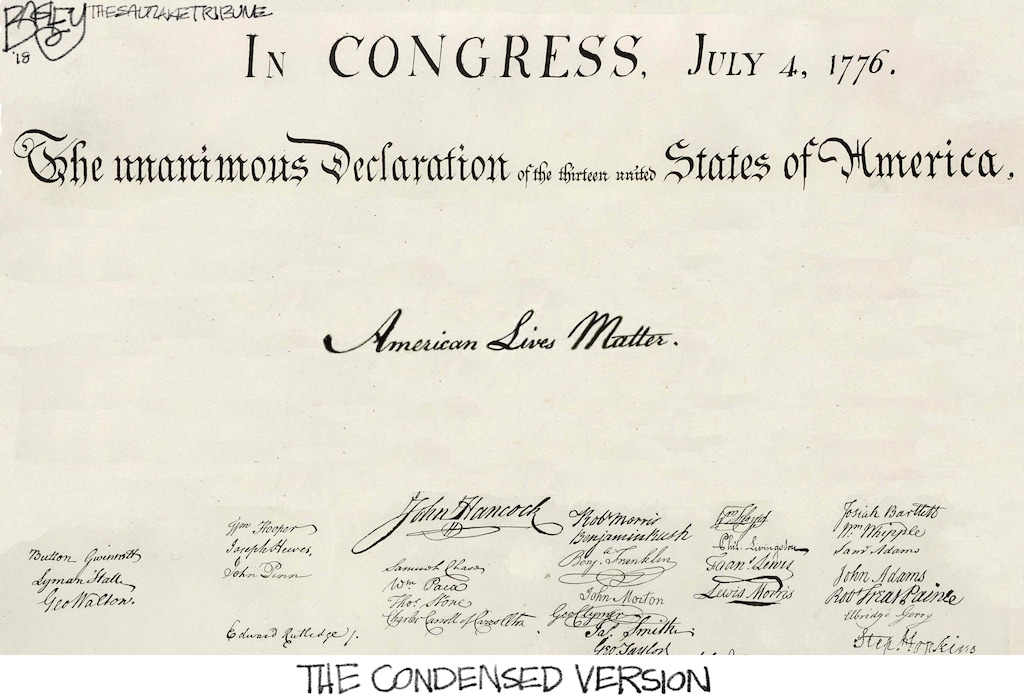 BAGLEY THE SALT LAKE TRIBUNE
'18
IN CONGRESS, JULY 4, 1776.
The unanimous Declaration of the thirteen united States of America,
American Lives Matter.
Button Gwinnett
Lyman Hall
Geo Walton.
Wm Hooper
Joseph Hewes,
John Penn
Edward Rutledge /.
John Hancock
Samuel Chase
Wm Paca
Thos Stone
Charles Carroll of Carrollton
Robt Morris
Benjamin Rush
Benj. Franklin
John Morton
Geo Clymer
Jas. Smith
Geo. Taylor
Phil. Livingston
Frans. Lewis
Lewis Morris
Josiah Bartlett
Wm Whipple
Saml Adams
John Adams
Robt Treat Paine
Elbridge Gerry
Step. Hopkins
THE CONDENSED VERSION